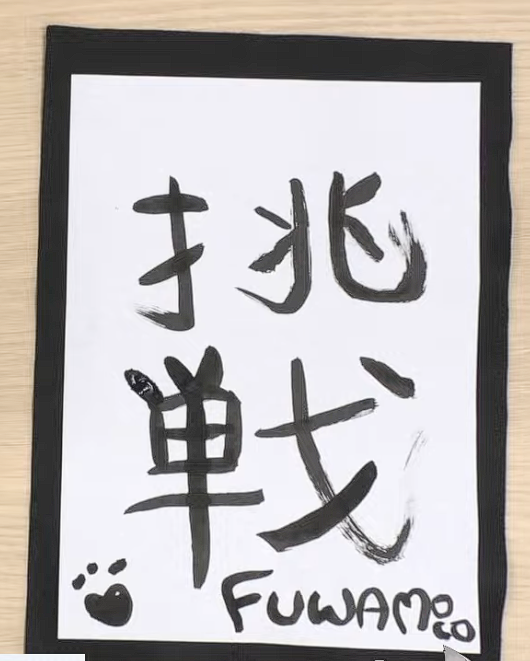 挑
戦
FUWAMOCO